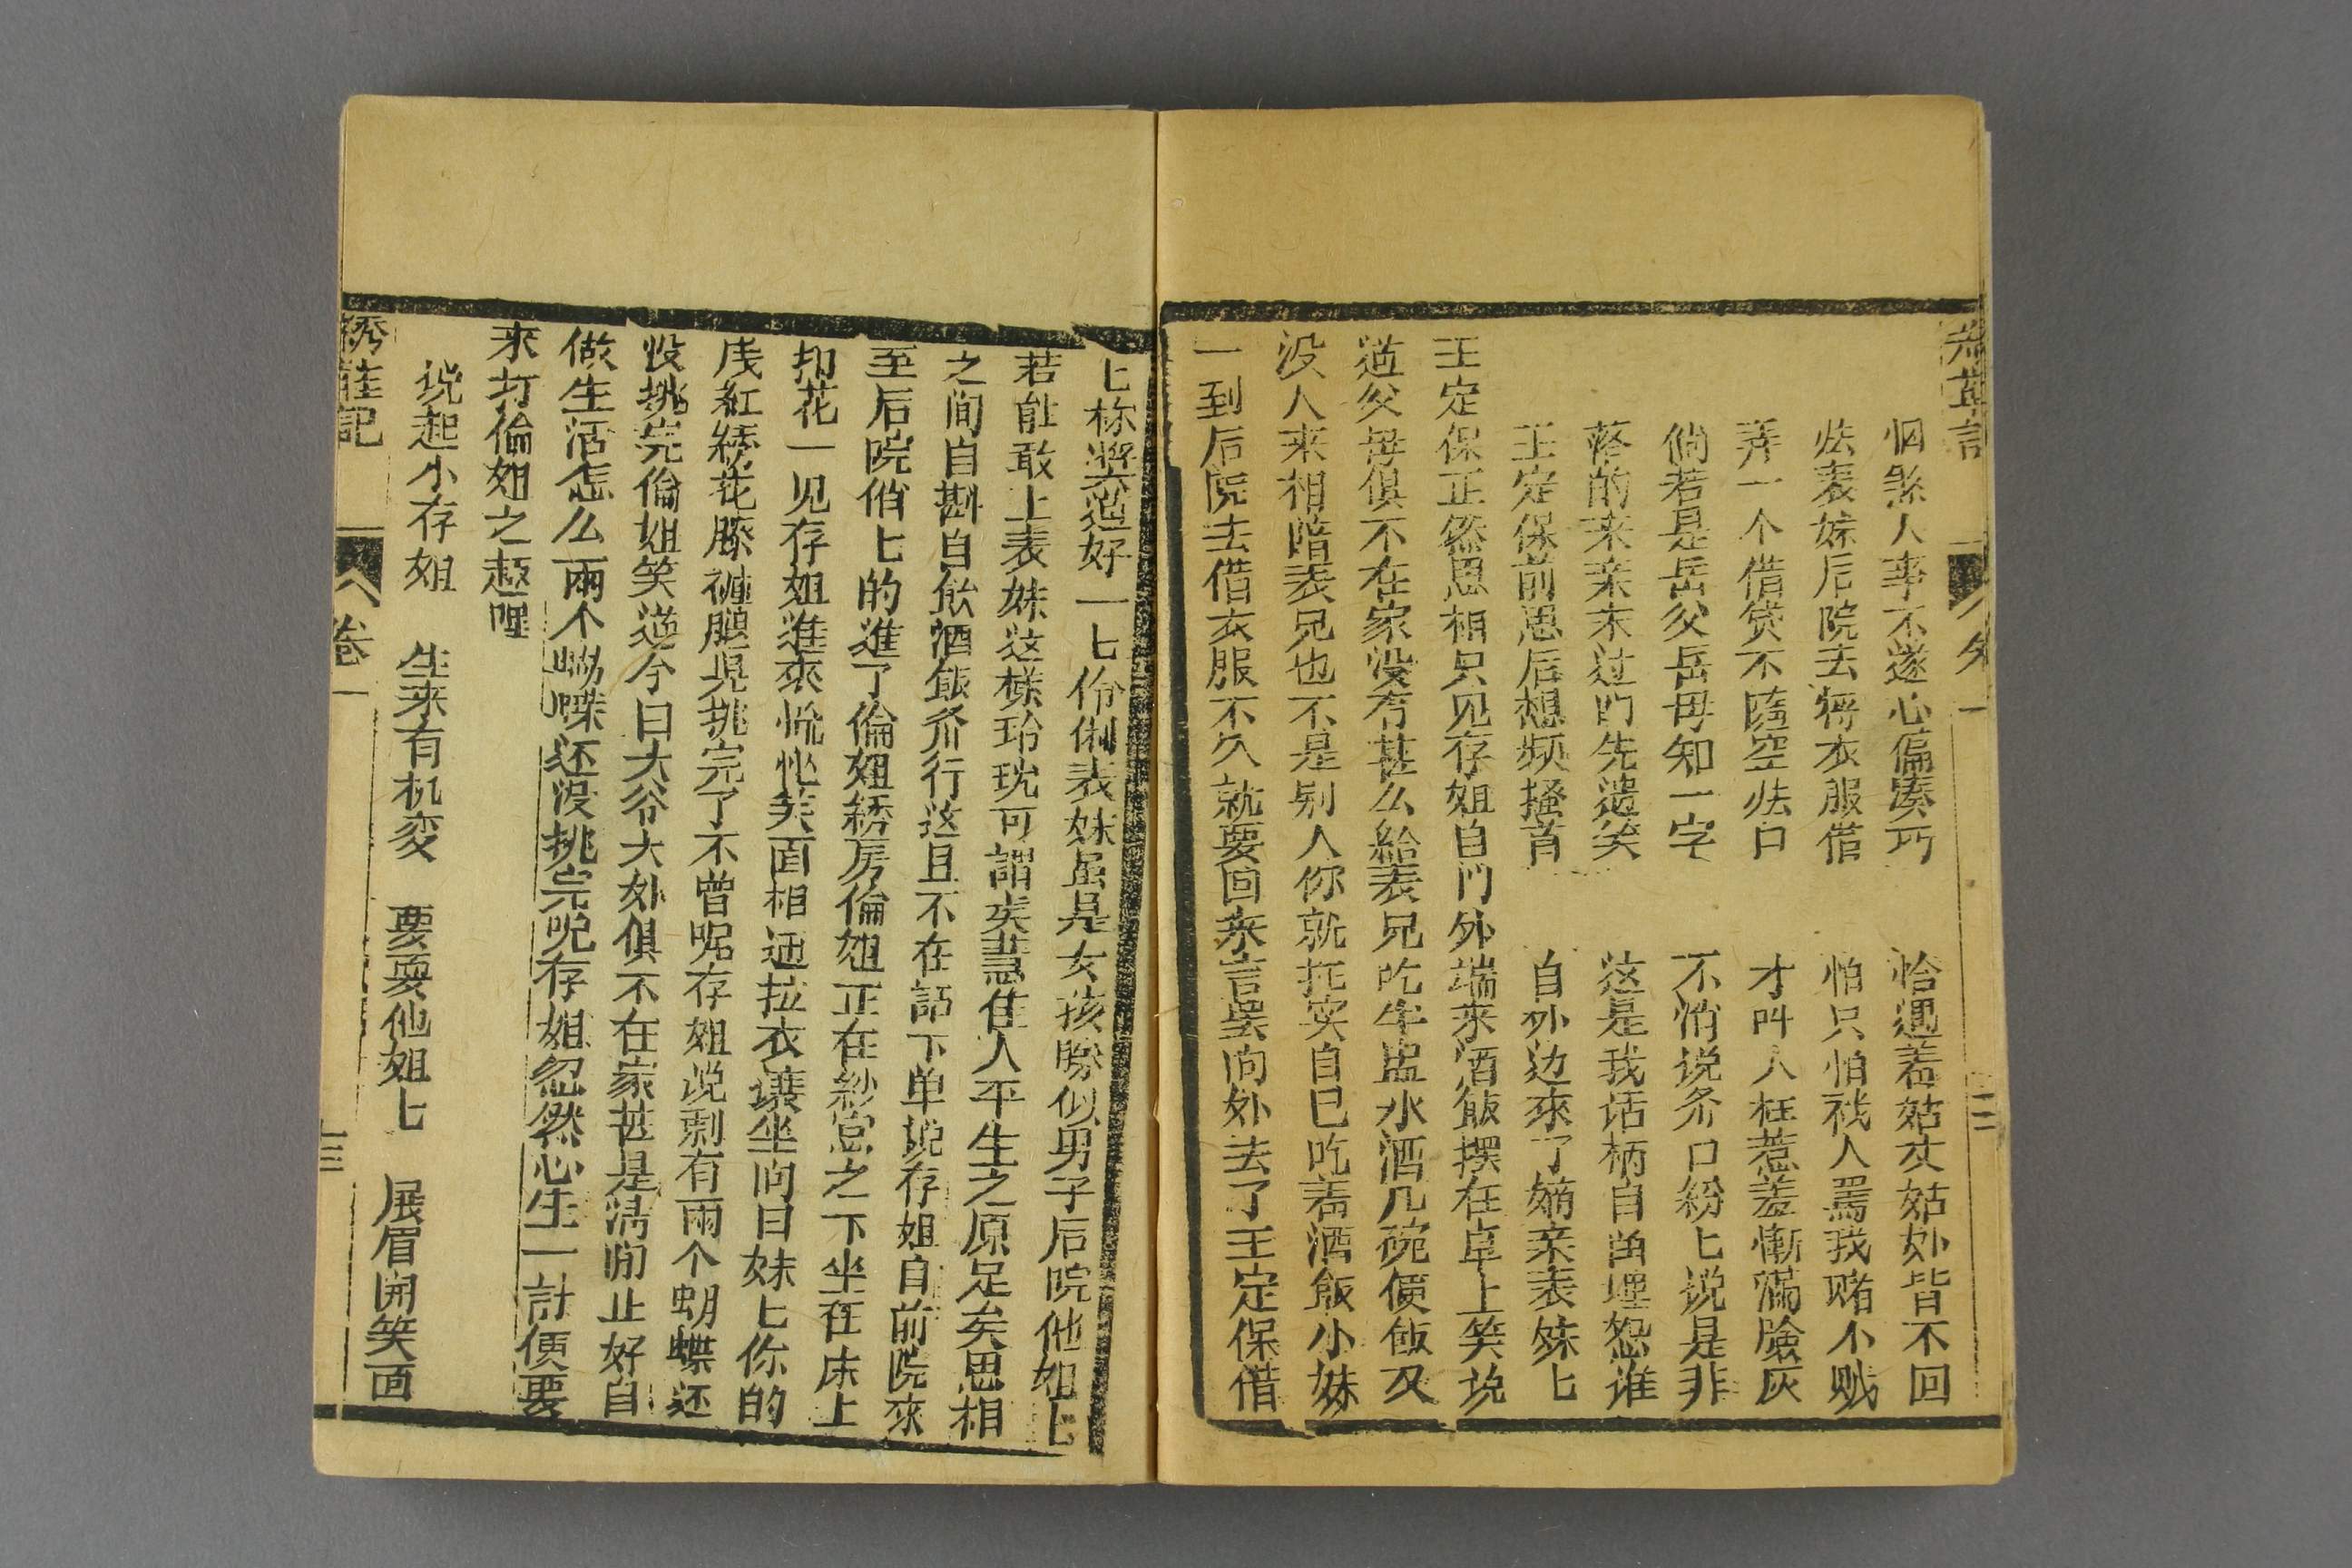 烟煞人事不遂心偏凑巧 恰遇着姑丈姑妳皆不回
怯表妹后院去将衣服借 怕只怕被人罵我賭不贼
弄一个借贷不随空怯口 才叫人枉惹羞慚滿臉灰
倘若是岳父岳母知一字 不消说众口紛匕说是非
落的来亲末过门先遗笑 这是我话柄自留埋怨谁
王定保前思后想频搔首 自外边來了嫡亲表妹匕
王定保正然思相只见存姐自门外端来酒飯摆在卓上笑说
道父母俱不在家没有甚么給表兄吃牢盅水酒几碗便飯又
没人来相陪表兄也不是别人你就托实自已吃着酒飯小妹
一到后院去借衣服不久就要回來言罢向外去了王定保借
匕称奨道好一七伶俐表妹虽是女孩勝似男子后院他姐匕
若能敢上表妹这様玲珑可謂賢慧佳人平生之原足矣思相
之间自斟自飲酒飯齐行这且不在話下单说存姐自前院來
至后院俏匕的進了倫姐綉房倫姐正在紗窓之下坐在床上
扣花一见存姐進來慌忙笑面相迎拉衣讓坐问曰妹匕你的
戌紅綉花膝褲腿児挑完了不曾呢存姐说剩有兩个蝴蝶还
没挑完倫姐笑道今日大爷大妳俱不在家甚是清闲止好自
做生活怎么兩个蝴蝶还没挑完呢存姐忽然心生一計便要
來打倫姐之趣哩
说起小存姐 生来有机変 要耍他姐匕 展眉開笑面
綉鞋記 卷一 十三